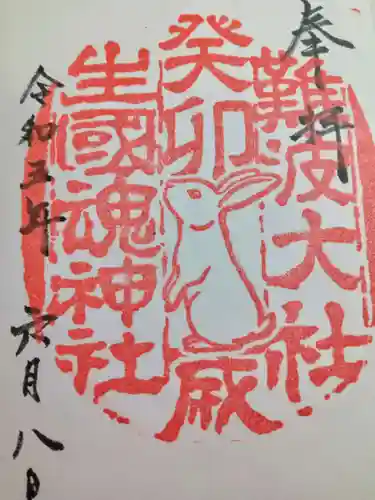 奉拝
難波大社
癸卯歳
生國魂神社
令和五年
六月八日